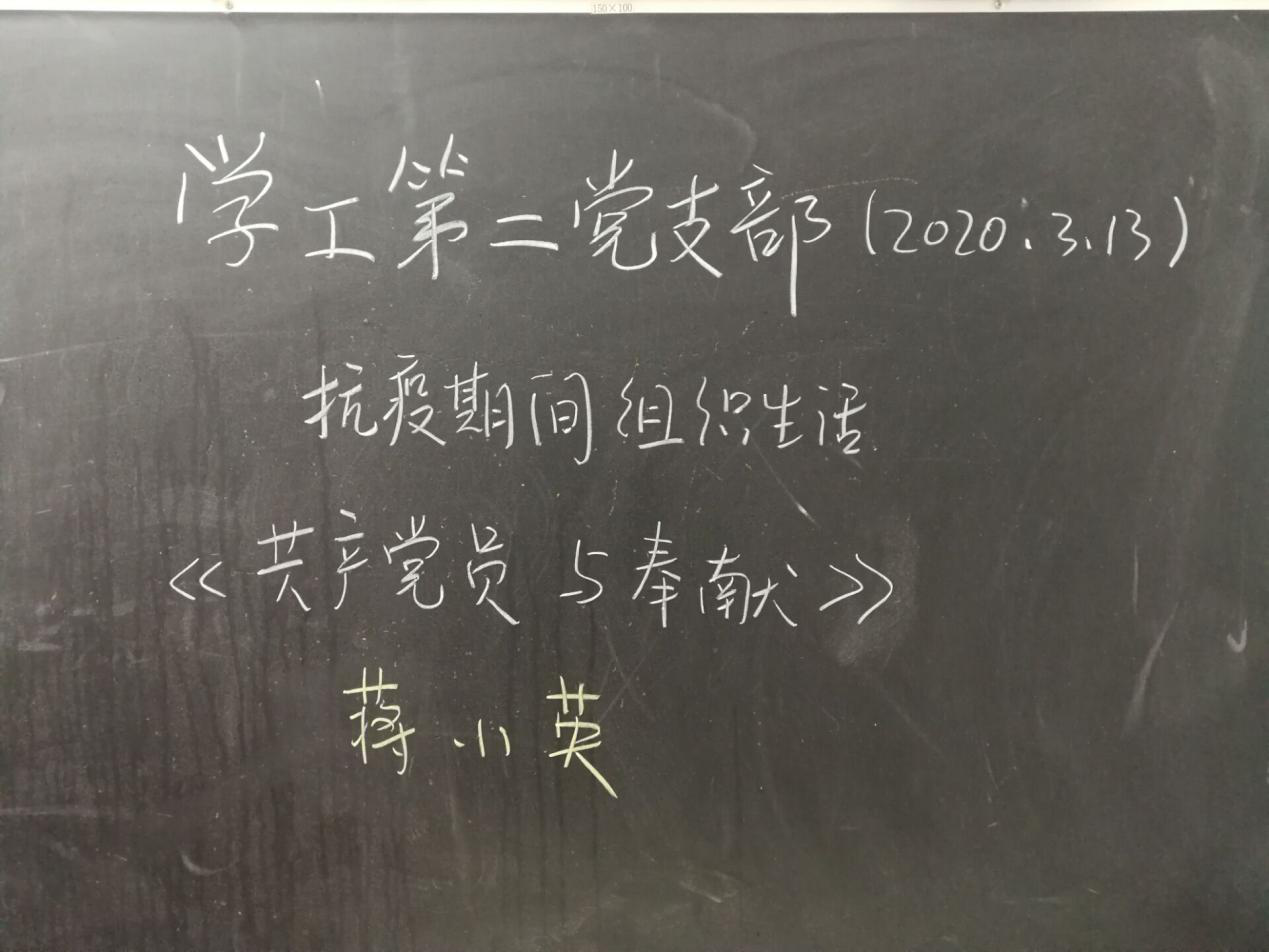 150×100
学工第二党支部(2020.3.13)
抗疫期间组织生活
《共产党员与奉献》
蒋小英